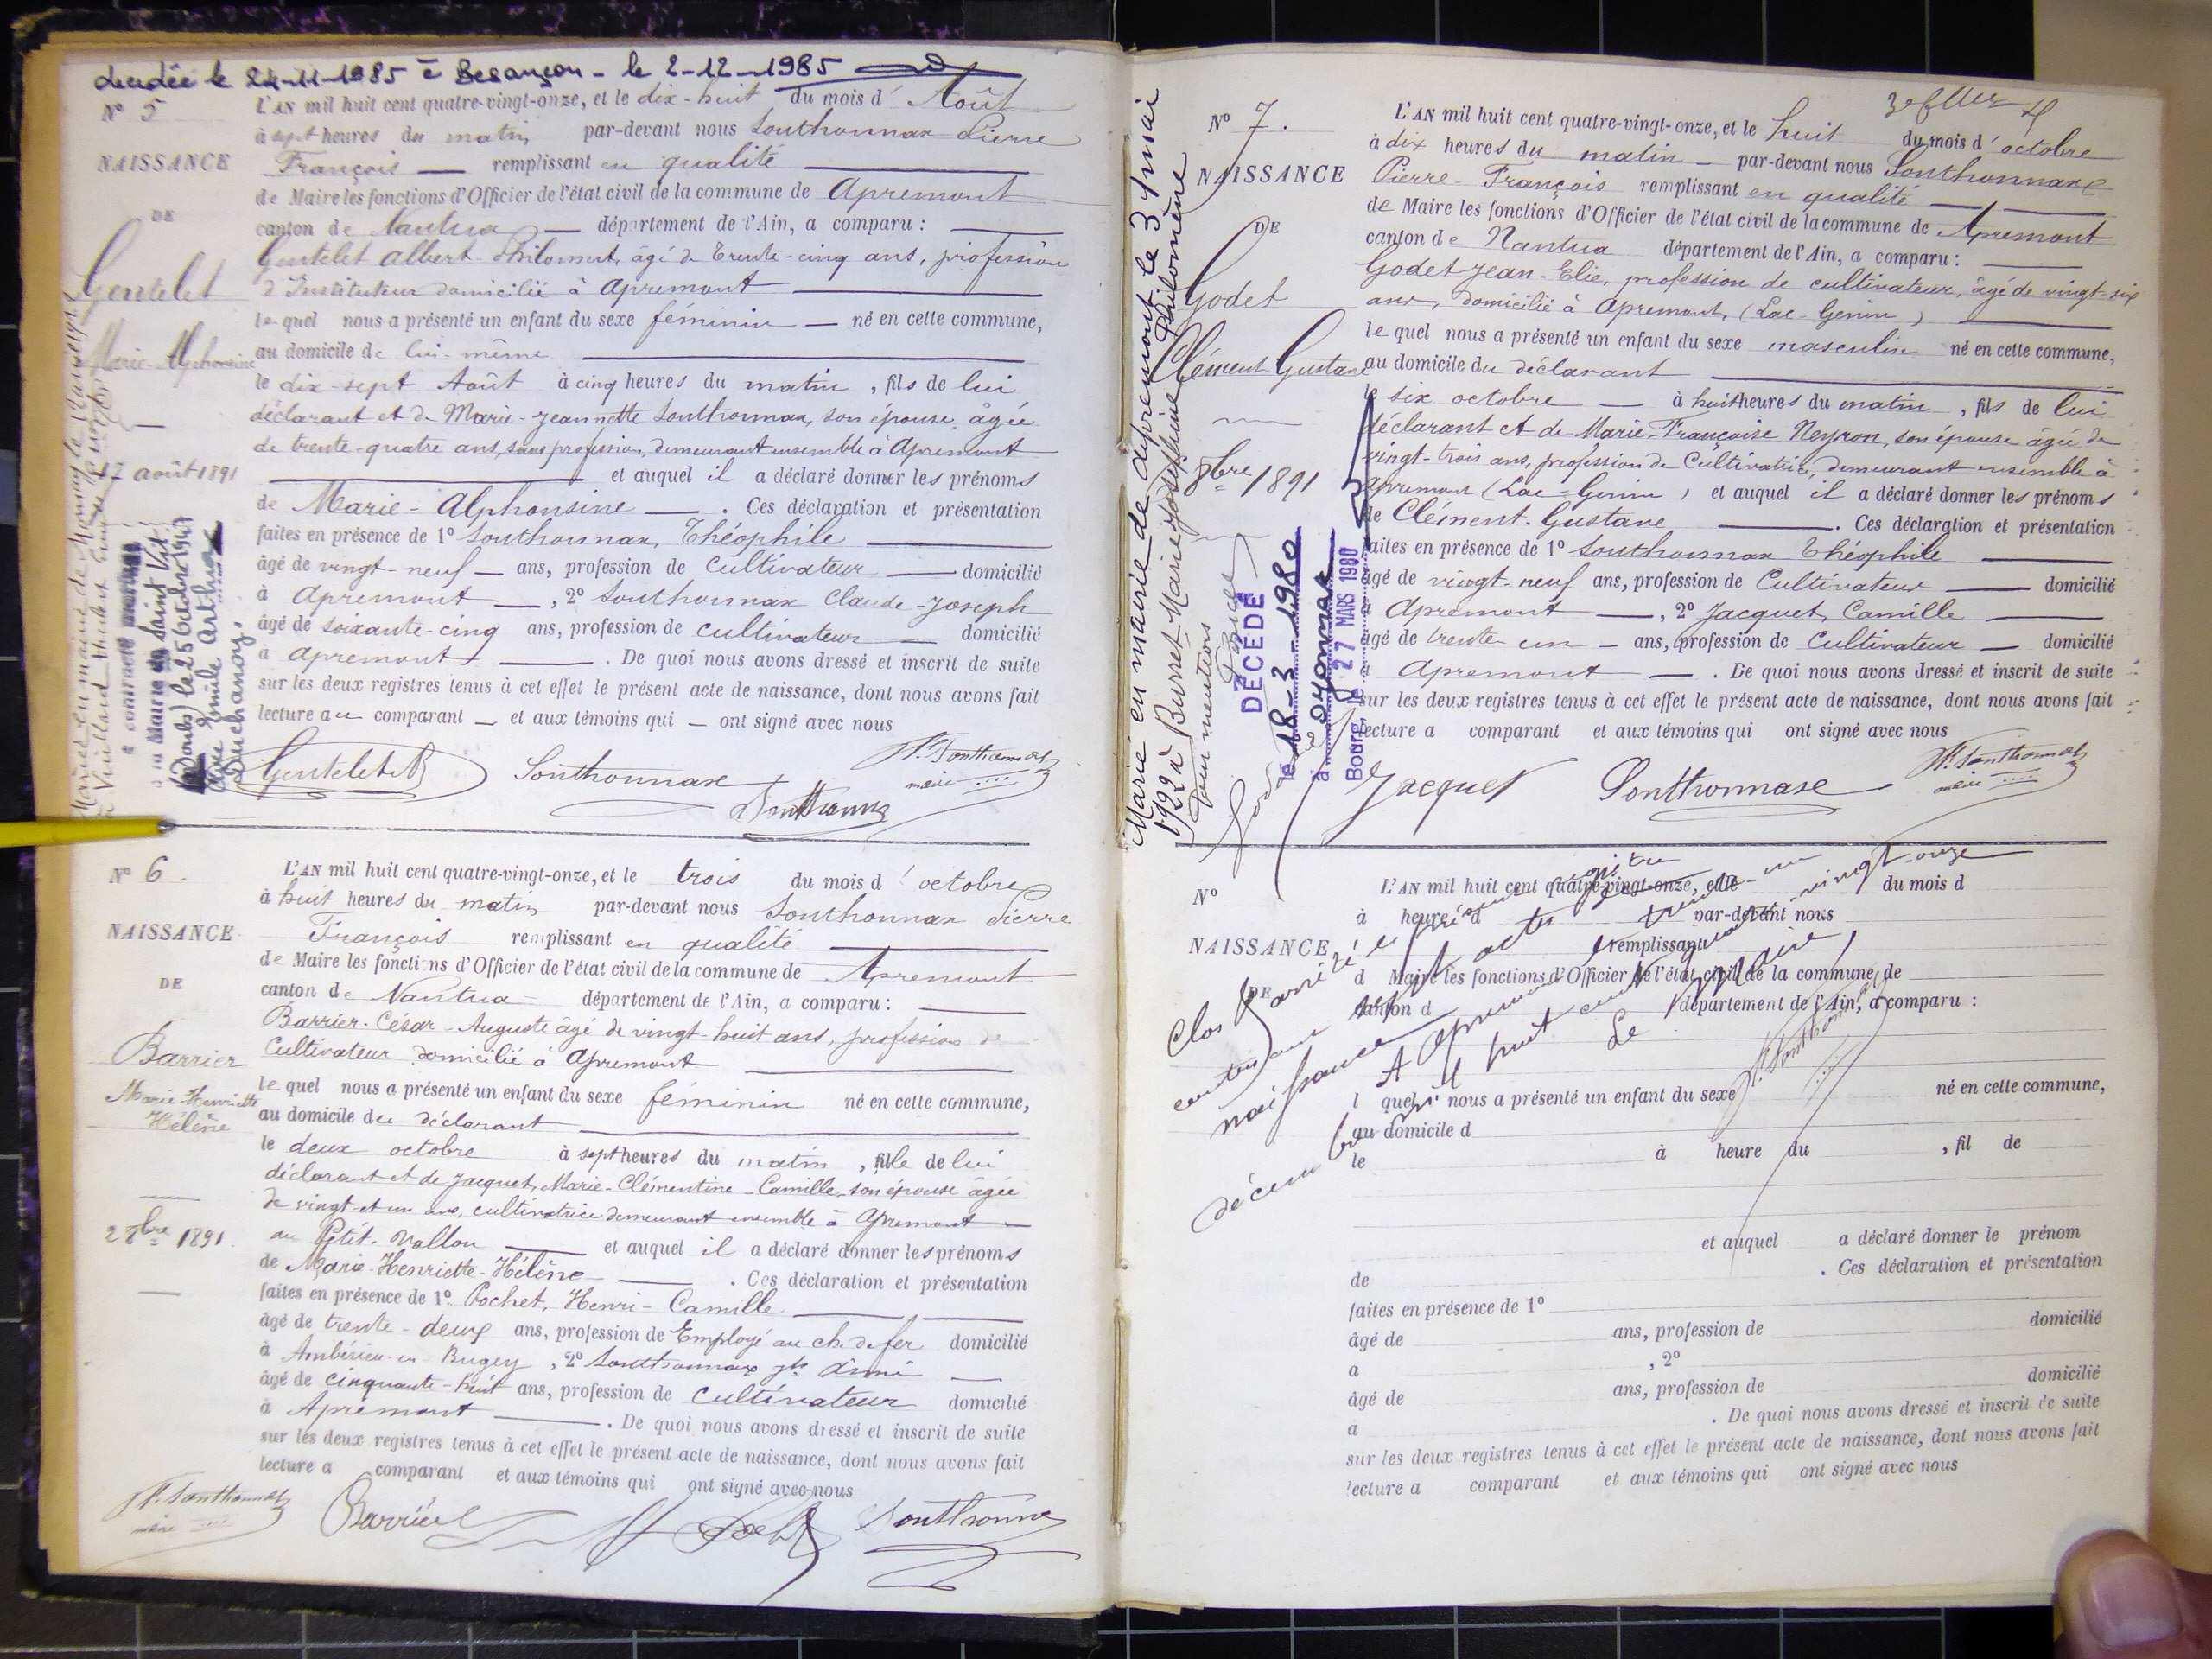 décédée le 24-11-1985 à Besançon - le 2-12-1985
N° 5
NAISSANCE
DE
Gentelet
Marie-Alphonsine
17 août 1891
L'AN mil huit cent quatre-vingt-onze, et le dix-huit du mois d'Août
à sept heures du matin par-devant nous Southonnax Pierre
François remplissant en qualité
de Maire les fonctions d'Officier de l'état civil de la commune de Apremont
canton de Nantua département de l'Ain, a comparu :
Gentelet Albert-Philomert, âgé de trente-cinq ans, profession
d'Instituteur domicilié à Apremont
lequel nous a présenté un enfant du sexe féminin né en cette commune,
au domicile de lui-même
le dix-sept Août à cinq heures du matin, fils de lui
déclarant et de Marie-Jeannette Southonnax, son épouse, âgée
de trente-quatre ans, sans profession, demeurant ensemble à Apremont
et auquel il a déclaré donner les prénoms
de Marie-Alphonsine. Ces déclaration et présentation
faites en présence de 1° Southonnax, Théophile
âgé de vingt-neuf ans, profession de Cultivateur domicilié
à Apremont, 2° Southonnax Claude-Joseph
âgé de soixante-cinq ans, profession de cultivateur domicilié
à Apremont. De quoi nous avons dressé et inscrit de suite
sur les deux registres tenus à cet effet le présent acte de naissance, dont nous avons fait
lecture au comparant et aux témoins qui ont signé avec nous
a contracté mariage
à la Mairie de Saint Vit
(Doubs) le 25 Octobre 1947
avec Emile Arthur
Duchanoy.
Gentelet A Southonnaxe P. Southonnax
maire
Southonnax
N° 6.
NAISSANCE
DE
Barrier
Marie-Henriette
Hélène
2 8bre 1891.
L'AN mil huit cent quatre-vingt-onze, et le trois du mois d'octobre
à huit heures du matin par-devant nous Southonnax Pierre
François remplissant en qualité
de Maire les fonctions d'Officier de l'état civil de la commune de Apremont
canton de Nantua département de l'Ain, a comparu :
Barrier-César-Auguste âgé de vingt-huit ans, profession de
Cultivateur domicilié à Apremont
lequel nous a présenté un enfant du sexe féminin né en cette commune,
au domicile du déclarant
le deux octobre à sept heures du matin, fille de lui
déclarant et de Jacquet, Marie-Clémentine-Camille, son épouse âgée
de vingt-et-un ans, cultivatrice demeurant ensemble à Apremont
au Petit-Vallon et auquel il a déclaré donner les prénoms
de Marie-Henriette-Hélène. Ces déclaration et présentation
faites en présence de 1° Pochet, Henri-Camille
âgé de trente-deux ans, profession de Employé au ch. de fer domicilié
à Ambérieu-en-Bugey, 2° Southonnax jh aimé
âgé de cinquante-huit ans, profession de cultivateur domicilié
à Apremont. De quoi nous avons dressé et inscrit de suite
sur les deux registres tenus à cet effet le présent acte de naissance, dont nous avons fait
lecture a comparant et aux témoins qui ont signé avec nous
P. Southonnax
maire
Barrier Southonnax
Marié en mairie de Apremont le 3 mai
1922 à Buvret Marie Joséphine Philomène
Pour mention
N° 7.
NAISSANCE
DE
Godet
Clément Gustave
8bre 1891
DÉCÉDÉ
le 18-3-1980
à Oyonnax
Bourg, le 27 MARS 1980
L'AN mil huit cent quatre-vingt-onze, et le huit du mois d'octobre
à dix heures du matin par-devant nous Southonnaxe
Pierre-François remplissant en qualité
de Maire les fonctions d'Officier de l'état civil de la commune de Apremont
canton de Nantua département de l'Ain, a comparu :
Godet Jean-Elie, profession de cultivateur, âgé de vingt-six
ans, domicilié à Apremont, (Lac-Genin)
lequel nous a présenté un enfant du sexe masculin né en cette commune,
au domicile du déclarant
le six octobre à huit heures du matin, fils de lui
déclarant et de Marie-Françoise Neyron, son épouse âgée de
vingt-trois ans, profession de Cultivatrice, demeurant ensemble à
Apremont (Lac-Genin) et auquel il a déclaré donner les prénoms
de Clément-Gustave. Ces déclaration et présentation
faites en présence de 1° Southonnax Théophile
âgé de vingt-neuf ans, profession de Cultivateur domicilié
à Apremont, 2° Jacquet, Camille
âgé de trente un ans, profession de Cultivateur domicilié
à Apremont. De quoi nous avons dressé et inscrit de suite
sur les deux registres tenus à cet effet le présent acte de naissance, dont nous avons fait
lecture a comparant et aux témoins qui ont signé avec nous
Jacquet Southonnaxe P. Southonnax
maire
N°
NAISSANCE
DE
L'AN mil huit cent quatre-vingt-onze, et le du mois d
à heure d par-devant nous
remplissant
d Maire les fonctions d'Officier de l'état civil de la commune de
canton d département de l'Ain, a comparu :
l quel nous a présenté un enfant du sexe né en cette commune,
au domicile d
le à heure du , fil de
et auquel a déclaré donner le prénom
de . Ces déclaration et présentation
faites en présence de 1°
âgé de ans, profession de domicilié
a , 2°
âgé de ans, profession de domicilié
a . De quoi nous avons dressé et inscrit de suite
sur les deux registres tenus à cet effet le présent acte de naissance, dont nous avons fait
lecture a comparant et aux témoins qui ont signé avec nous
Clos & arrêté le présent registre
contenant sept actes de
naissance A Apremont le trente-un
décembre mil huit cent quatre-vingt-onze
Le Maire,
P. Southonnax